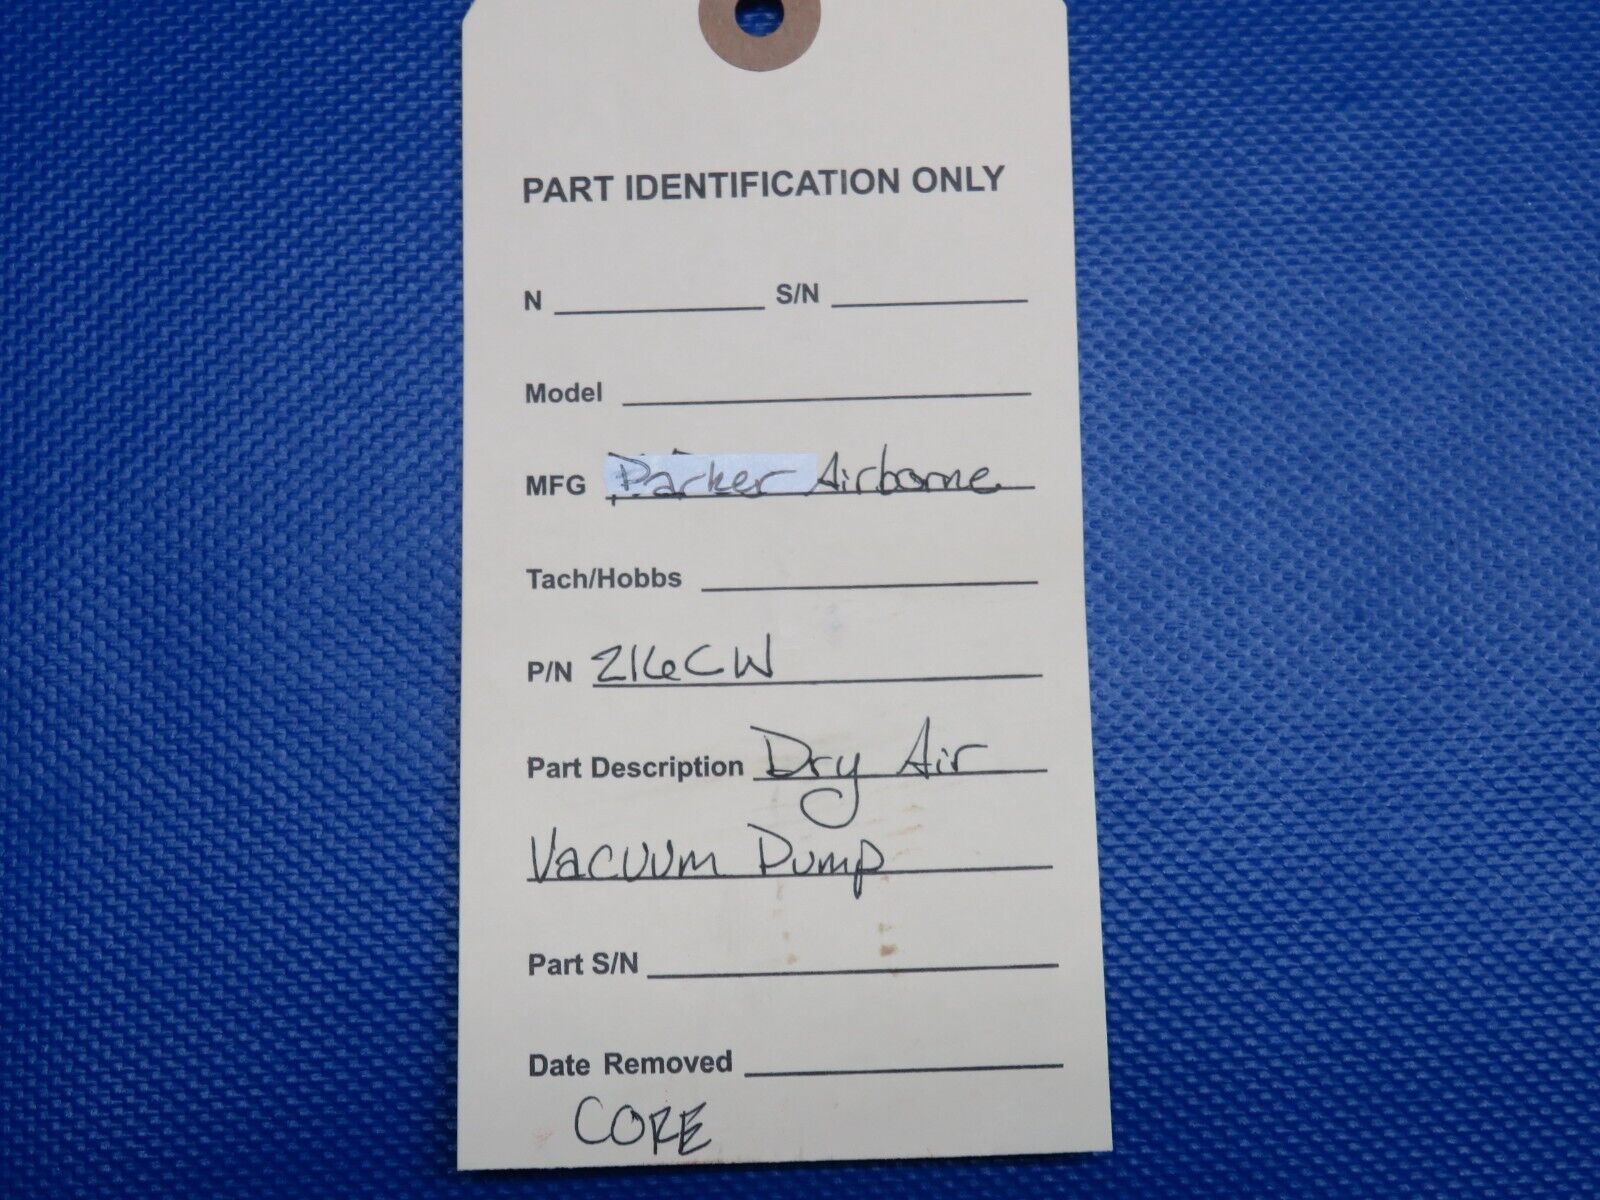 PART IDENTIFICATION ONLY
N S/N
Model
MFG Parker Airborne
Tach/Hobbs
P/N 216CW
Part Description Dry Air
Vacuum Pump
Part S/N
Date Removed
CORE